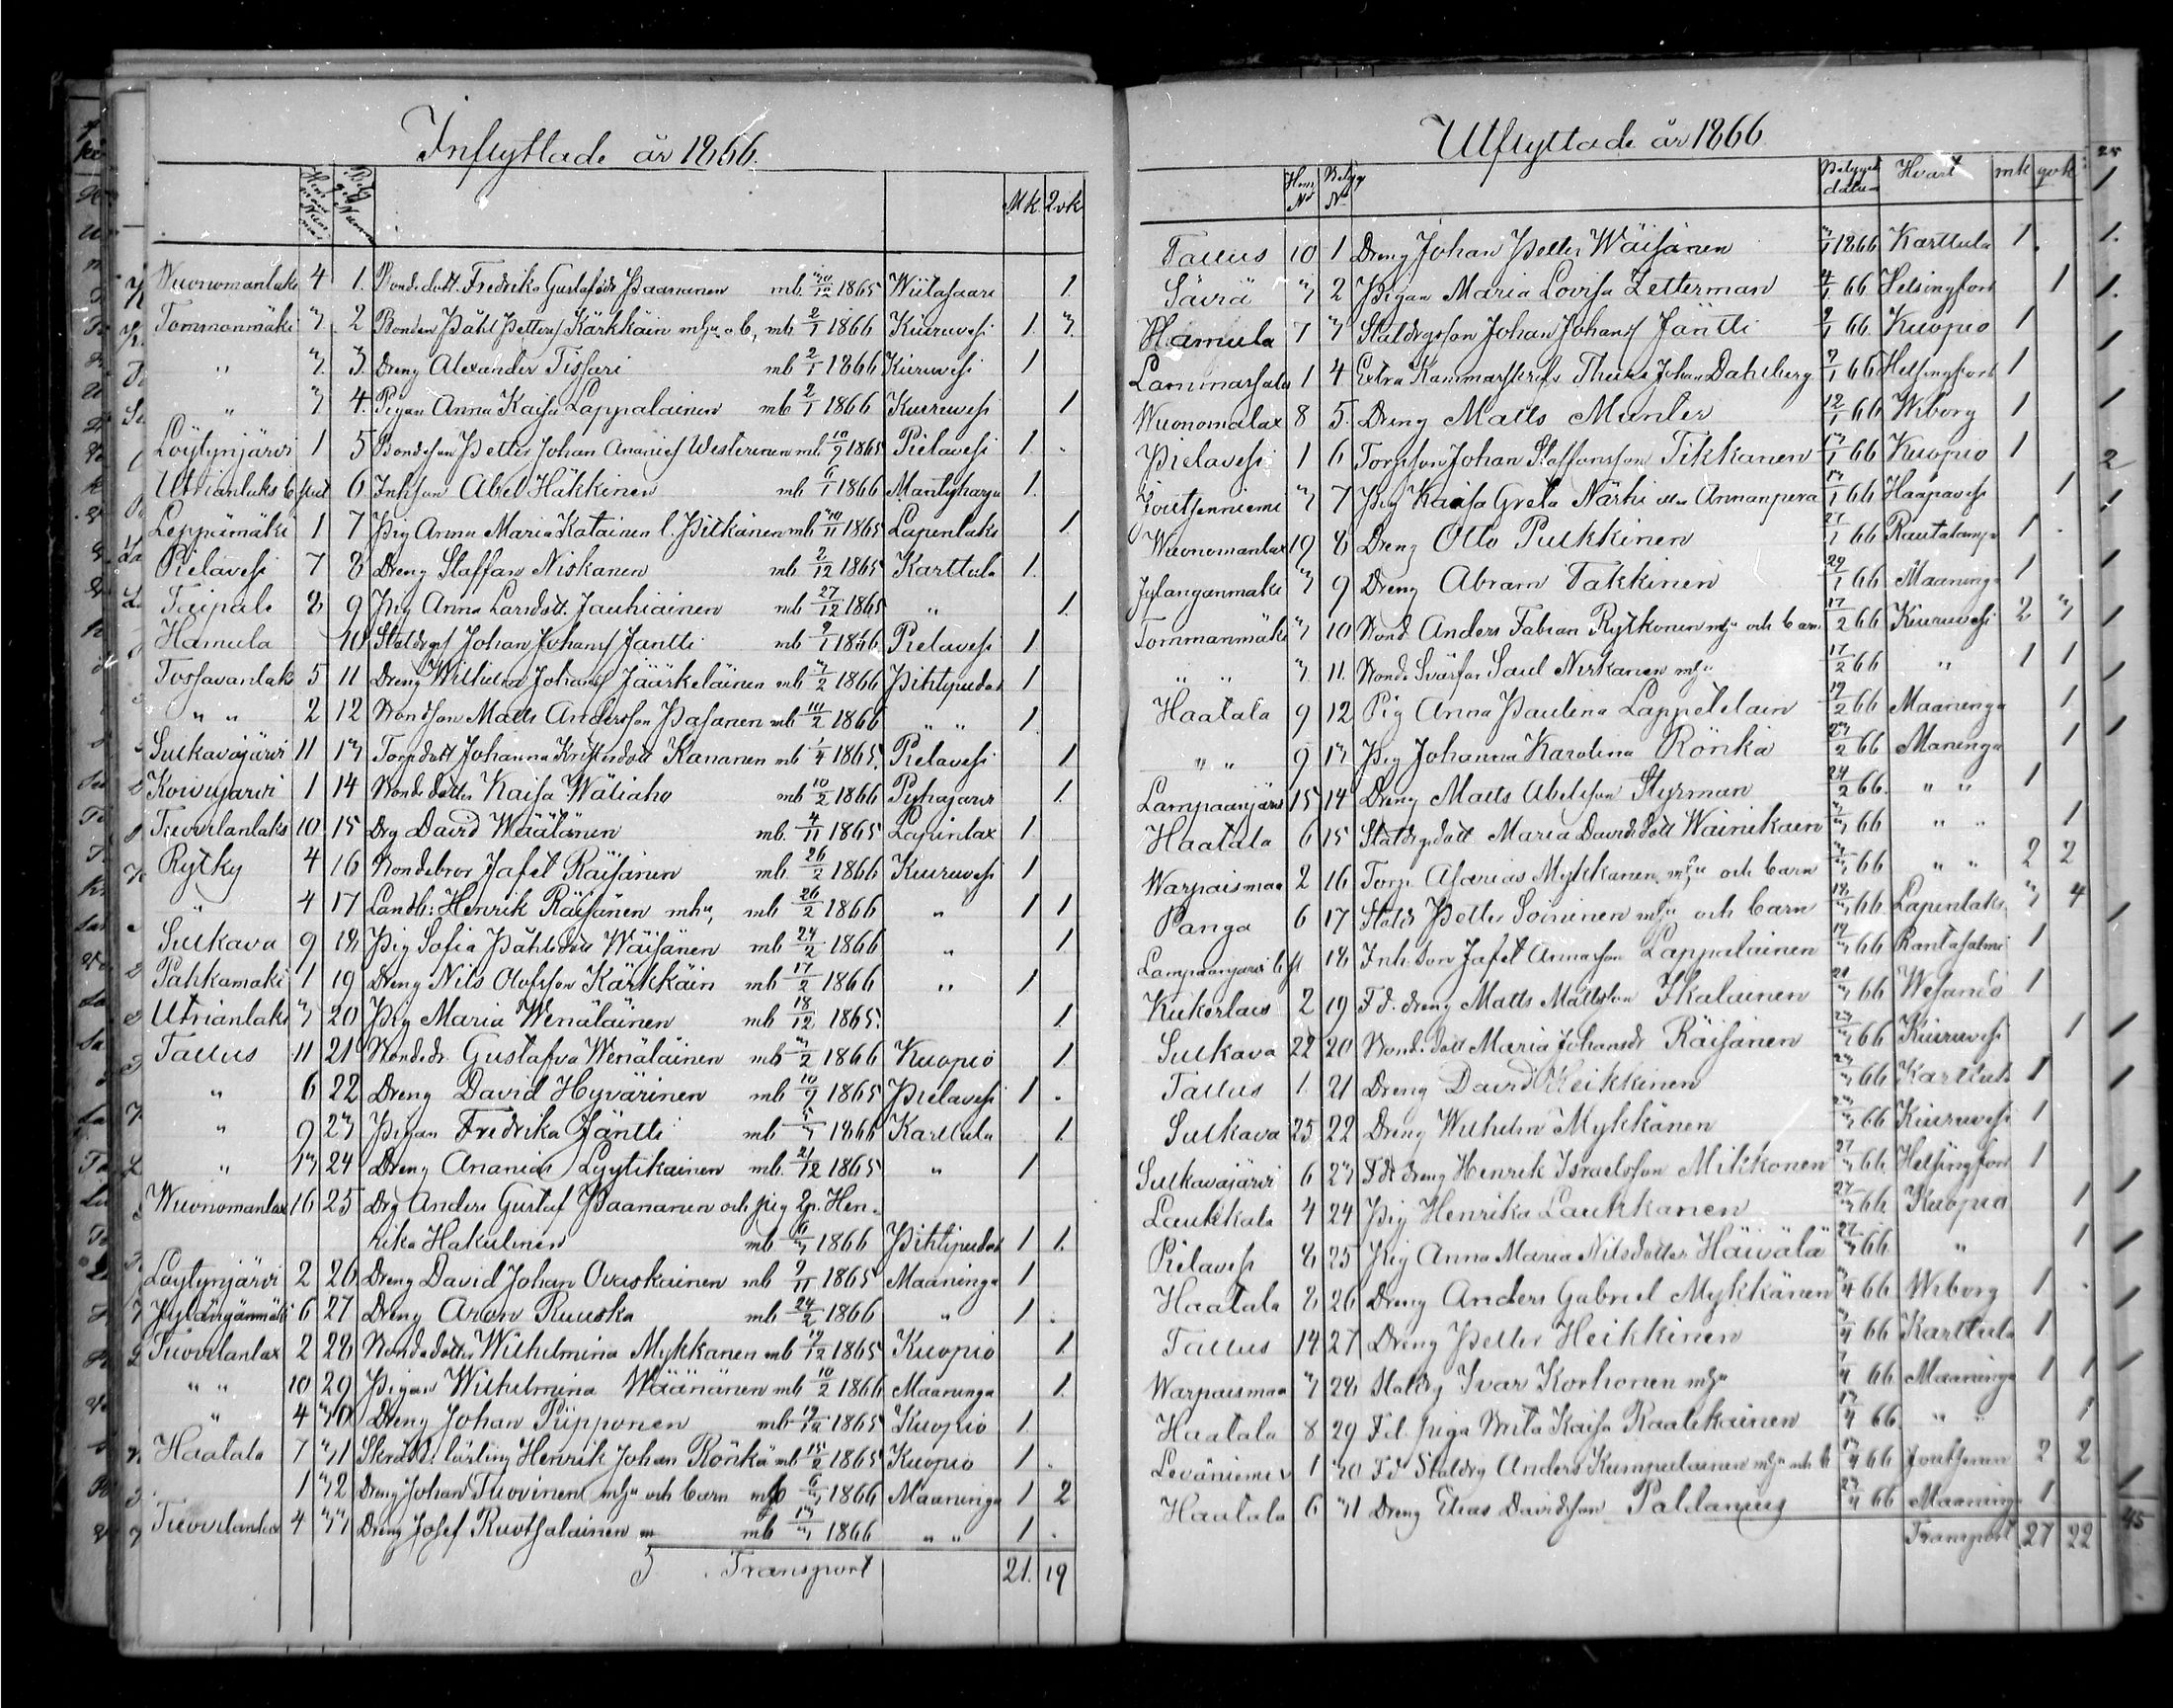 Inflyttade år 1866.
Hemmans Nummer
Betygets Nummer
Mk. Qvk
Wuonomanlaks 4 1. Bondedott. Fredrika Gustafsdr Paananen mb. 30/12 1865 Wiitasaari 1.
Tommonmäki 3. 2 Bonden Påhl Petters Kärkkäin mhu o b, mb. 2/1 1866 Kiuruvesi 1. 3.
" 3. 3. Dreng Alexander Tissari mb 2/1 1866 Kiuruvesi 1
" 3 4. Pigan Anna Kaisa Lappalainen mb 2/1 1866 Kiuruvesi 1
Löytynjärvi 1 5 Bondeson Petter Johan Ananies Westerinen mb 10/9 1865 Pielavesi 1.
Utrianlaks bsut 6 Inhson Abel Häkkinen mb 6/1 1866 Mantyharju 1.
Leppämäki 1 7 Pig Anna Maria Katainen l. Pitkänen mb 30/11 1865 Lapenlaks 1.
Pielavesi 7 8 Dreng Staffan Niskanen mb. 2/12 1865 Karttula 1.
Taipale 8 9 Pig Anna Larsdott. Jauhiainen mb 27/12 1865 " 1.
Hamula 10 Statdrgs Johan Johans Jantti mb 9/1 1866 Pielavesi 1.
Tossavanlaks 5 11 Dreng Wilhelm Johans Jäärkeläinen mb 3/2 1866 Pihtipudas 1
" " 2 12 Bondson Matts Andersson Pasanen mb 10/2 1866 " " 1.
Sulkavajärvi 11 13 Torpdott Johanna Kristersdott Kananen mb 1/4 1865. Pielavesi 1
Koivujarvi 1 14 Bondedotter Kaisa Wäliaho mb 10/2 1866 Pyhajarvi 1.
Tuovilanlaks 10. 15 Drg David Wäätänen mb. 4/11 1865 Lapinlax 1.
Rytky 4 16 Bondebror Jafet Räisänen mb. 26/2 1866 Kiuruvesi 1
" 4 17 Landb: Henrik Räisänen mhu, mb 26/2 1866 " 1 1
Sulkava 9 18 Pig Sofia Påhlsdott Wäisänen mb 24/2 1866 " 1.
Pahkamaki 1 19 Dreng Nils Olofsson Kärkkäin mb 17/2 1866 " 1.
Utrianlaks 3 20 Pig Maria Wenäläinen mb 18/12 1865. 1.
Tallus 11 21 Bondedr. Gustafva Wenäläinen mb 3/2 1866 Kuopio 1.
" 6 22 Dreng David Hyvärinen mb 10/9 1865 Pielavesi 1.
" 9 23 Pigan Fredrika Jäntti mb 5/3 1866 Karttula 1.
" 13 24 Dreng Ananias Lyytikainen mb. 21/12 1865 " 1
Wuonomanlax 16 25 Drg Anders Gustaf Paananen och pig Hen-
rika Hakulinen mb 6/3 1866 Pihtipudas 1 1.
Löytynjärvi 2 26 Dreng David Johan Ovaskainen mb 9/11 1865 Maaninga 1
Jylänganmäki 6 27 Dreng Aron Ruuska mb 24/2 1866 " 1.
Tuovilanlax 2 28 Bondedotter Wilhelmina Mykkanen mb 19/12 1865 Kuopio 1.
" " 10 29 Pigan Wilhelmina Wäänänen mb 10/2 1866 Maaninga 1.
" 4 30 Dreng Johan Piipponen mb 19/12 1865 Kuopio 1.
Haatala 7 31 Skrädd: lärling Henrik Johan Rönkä mb 15/2 1865 Kuopio 1.
1 32 Dreng Johan Tuovinen mhu och barn mb 6/3 1866 Maaninga 1 2
Tuovilanlax 4 33 Dreng Josef Ruotsalainen mb 13/3 1866 " " 1.
Transport 21. 19
Utflyttade år 1866
Hem. No Betyg No Betygets datum Hvart mk qvk
Tallus 10 1 Dreng Johan Petter Wäisänen 3/1 1866 Karttula 1.
Sävia 3 2 Pigan Maria Lovisa Zetterman 4/1 66 Helsingfors 1
Hamula 7 3 Statdrgsson Johan Johans Jäntti 9/1 66. Kuopio 1
Lammassalo 1 4 Extra Kammarskrifv Thure Johan Dahlberg 9/1 66 Helsingfors 1
Wuonomalax 8 5. Dreng Matts Munter 12/1 66 Wiborg 1
Pielavesi 1 6 Torpson Johan Staffansson Tikkanen 13/1 66 Kuopio 1
Joutsenniemi 3 7 Pig Kaisa Greta Närhi Annanpera 13/1 66 Haapavesi 1
Wuonomanlax 19 8 Dreng Otto Pulkkinen 27/1 66 Rautalampi 1
Jylanganmaki 3 9 Dreng Abram Takkinen 29/1 66 Maaninga 1
Tommanmäki 3 10 Bond. Anders Fabian Rytkonen mhu och barn 17/2 66 Kiuruvesi 2 3
" " 3. 11. Bonde Svärfar Saul Niskanen mhu 17/2 66 " 1 1
Haatala 9 12 Pig Anna Paulina Lappetelain 19/2 66 Maaninga 1
" " 9 13 Pig Johanna Karolina Rönkä 23/2 66 Maninga 1
Lampaanjärvi 15 14 Dreng Matts Abelsson Styrman 24/2 66. " " 1
Haatala 6 15 Statdrgdott Maria Davidsdott Wainikain 3/3 66 " " 1
Warpaismaa 2 16 Torp. Asarias Mykkanen mhu och barn 3/3 66 " " 2 2
Panga 6 17 Statdr Petter Soininen mhu och barn 18/3 66 Lapenlaks 3 4
Lampaanjarvi bst 18 Inh. son Jafet Annasson Lappalainen 19/3 66 Rantasalmi 1
Kukerlaus 2 19 Fd. dreng Matts Mattsson Ikalainen 21/3 66 Wesando 1
Sulkava 22 20 Bond. dott Maria Johansdr Räisänen 23/3 66 Kiuruvesi 1
Tallus 1. 21 Dreng David Heikkinen 23/3 66 Karttula 1
Sulkava 25 22 Dreng Wilhelm Mykkänen 23/3 66 Kiuruvesi 1
Sulkavajärvi 6 23 Fd dreng Henrik Israelsson Mikkonen 27/3 66 Helsingfors 1
Laukkala 4 24 Pig Henrika Laukkanen 27/3 66 Kuopio 1
Pielavesi 8 25 Pig Anna Maria Nilsdotter Häivälä 27/3 66 " 1
Haatala 8 26 Dreng Anders Gabriel Mykkänen 3/4 66 Wiborg 1
Tallus 14 27 Dreng Petter Heikkinen 3/4 66 Karttula 1.
Warpaismaa 3 28 Statdrg Ivar Korhonen mhu 7/4 66 Maaninga 1 1
Haatala 8 29 Fd. piga Brita Kaisa Raatikainen 13/4 66. " " 1
Leväniemi 1 30 Fd Statdrg Anders Kumpulainen mhu och b 13/4 66 Joutsenn 2 2
Haatala 6 31 Dreng Elias Davidsson Paldanius 23/4 66 Maaninga 1.
Transport 27 22